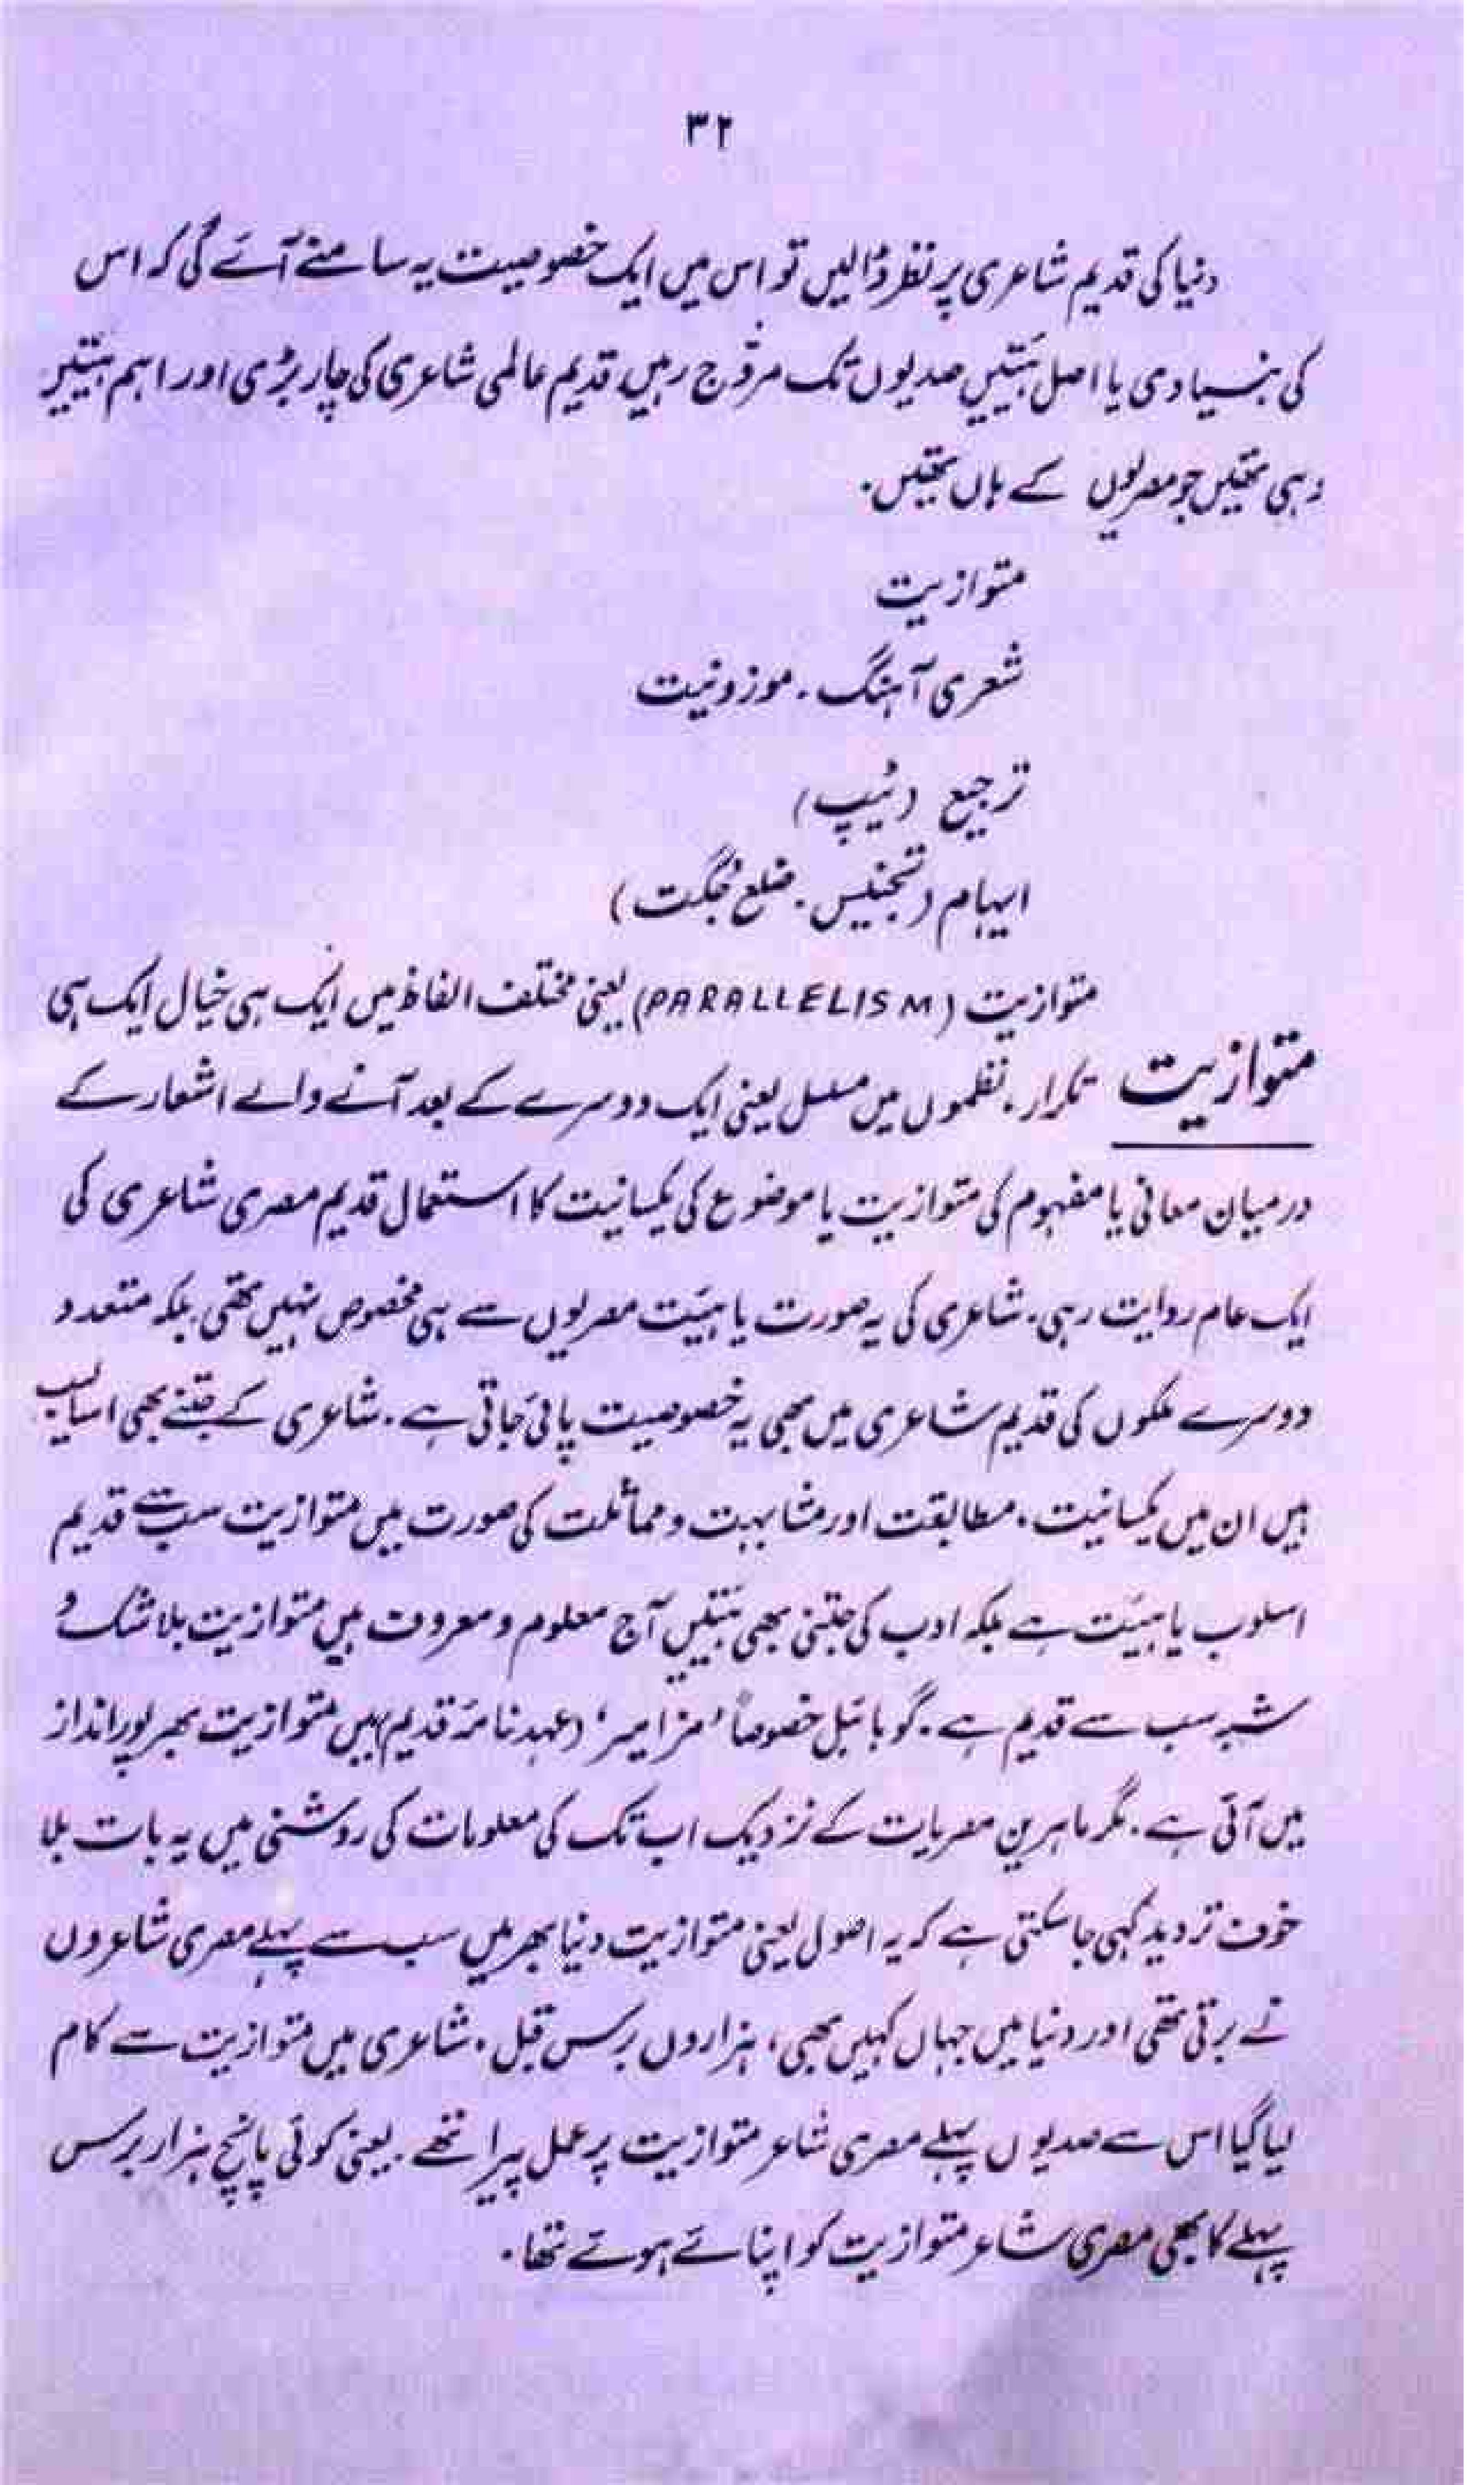 ۳۲
دنیا کی قدیم شاعری پر نظر ڈالیں تو اس میں ایک خصوصیت یہ سامنے آئے گی کہ اس
کی بنیادی یا اصل ہئیتیں صدیوں تک مروّج رہیں۔ قدیم عالمی شاعری کی چار بڑی اور اہم ہئیتیں
وہی تھیں جو مصریوں کے ہاں تھیں۔
متوازیت
شعری آہنگ۔ موزونیت
ترجیع (ٹیپ)
ایہام (تجنیس۔ ضلع جُگت)
متوازیت (PARALLELISM) یعنی مختلف الفاظ میں ایک ہی خیال ایک ہی
متوازیت
تکرار۔ نظموں میں مسلسل یعنی ایک دوسرے کے بعد آنے والے اشعار کے
درمیان معانی یا مفہوم کی متوازیت یا موضوع کی یکسانیت کا استعمال قدیم مصری شاعری کی
ایک عام روایت رہی۔ شاعری کی یہ صورت یا ہیئت مصریوں سے ہی مخصوص نہیں تھی بلکہ متعدد
دوسرے ملکوں کی قدیم شاعری میں بھی یہ خصوصیت پائی جاتی ہے۔ شاعری کے جتنے بھی اسالیب
ہیں ان میں یکسانیت، مطابقت اور مشابہت و مماثلت کی صورت میں متوازیت سب سے قدیم
اسلوب یا ہیئت ہے بلکہ ادب کی جتنی بھی ہئیتیں آج معلوم و معروف ہیں متوازیت بلا شک و
شبہ سب سے قدیم ہے۔ گو بائبل خصوصاً 'مزامیر' (عہد نامۂ قدیم) میں متوازیت بھرپور انداز
میں آئی ہے۔ مگر ماہرین مصریات کے نزدیک اب تک کی معلومات کی روشنی میں یہ بات بلا
خوف تردید کہی جا سکتی ہے کہ یہ اصول یعنی متوازیت دنیا بھر میں سب سے پہلے مصری شاعروں
نے برتی تھی اور دنیا میں جہاں کہیں بھی، ہزاروں برس قبل، شاعری میں متوازیت سے کام
لیا گیا اس سے صدیوں پہلے مصری شاعر متوازیت پر عمل پیرا تھے۔ یعنی کوئی پانچ ہزار برس
پہلے کا بھی مصری شاعر متوازیت کو اپنائے ہوئے تھا۔